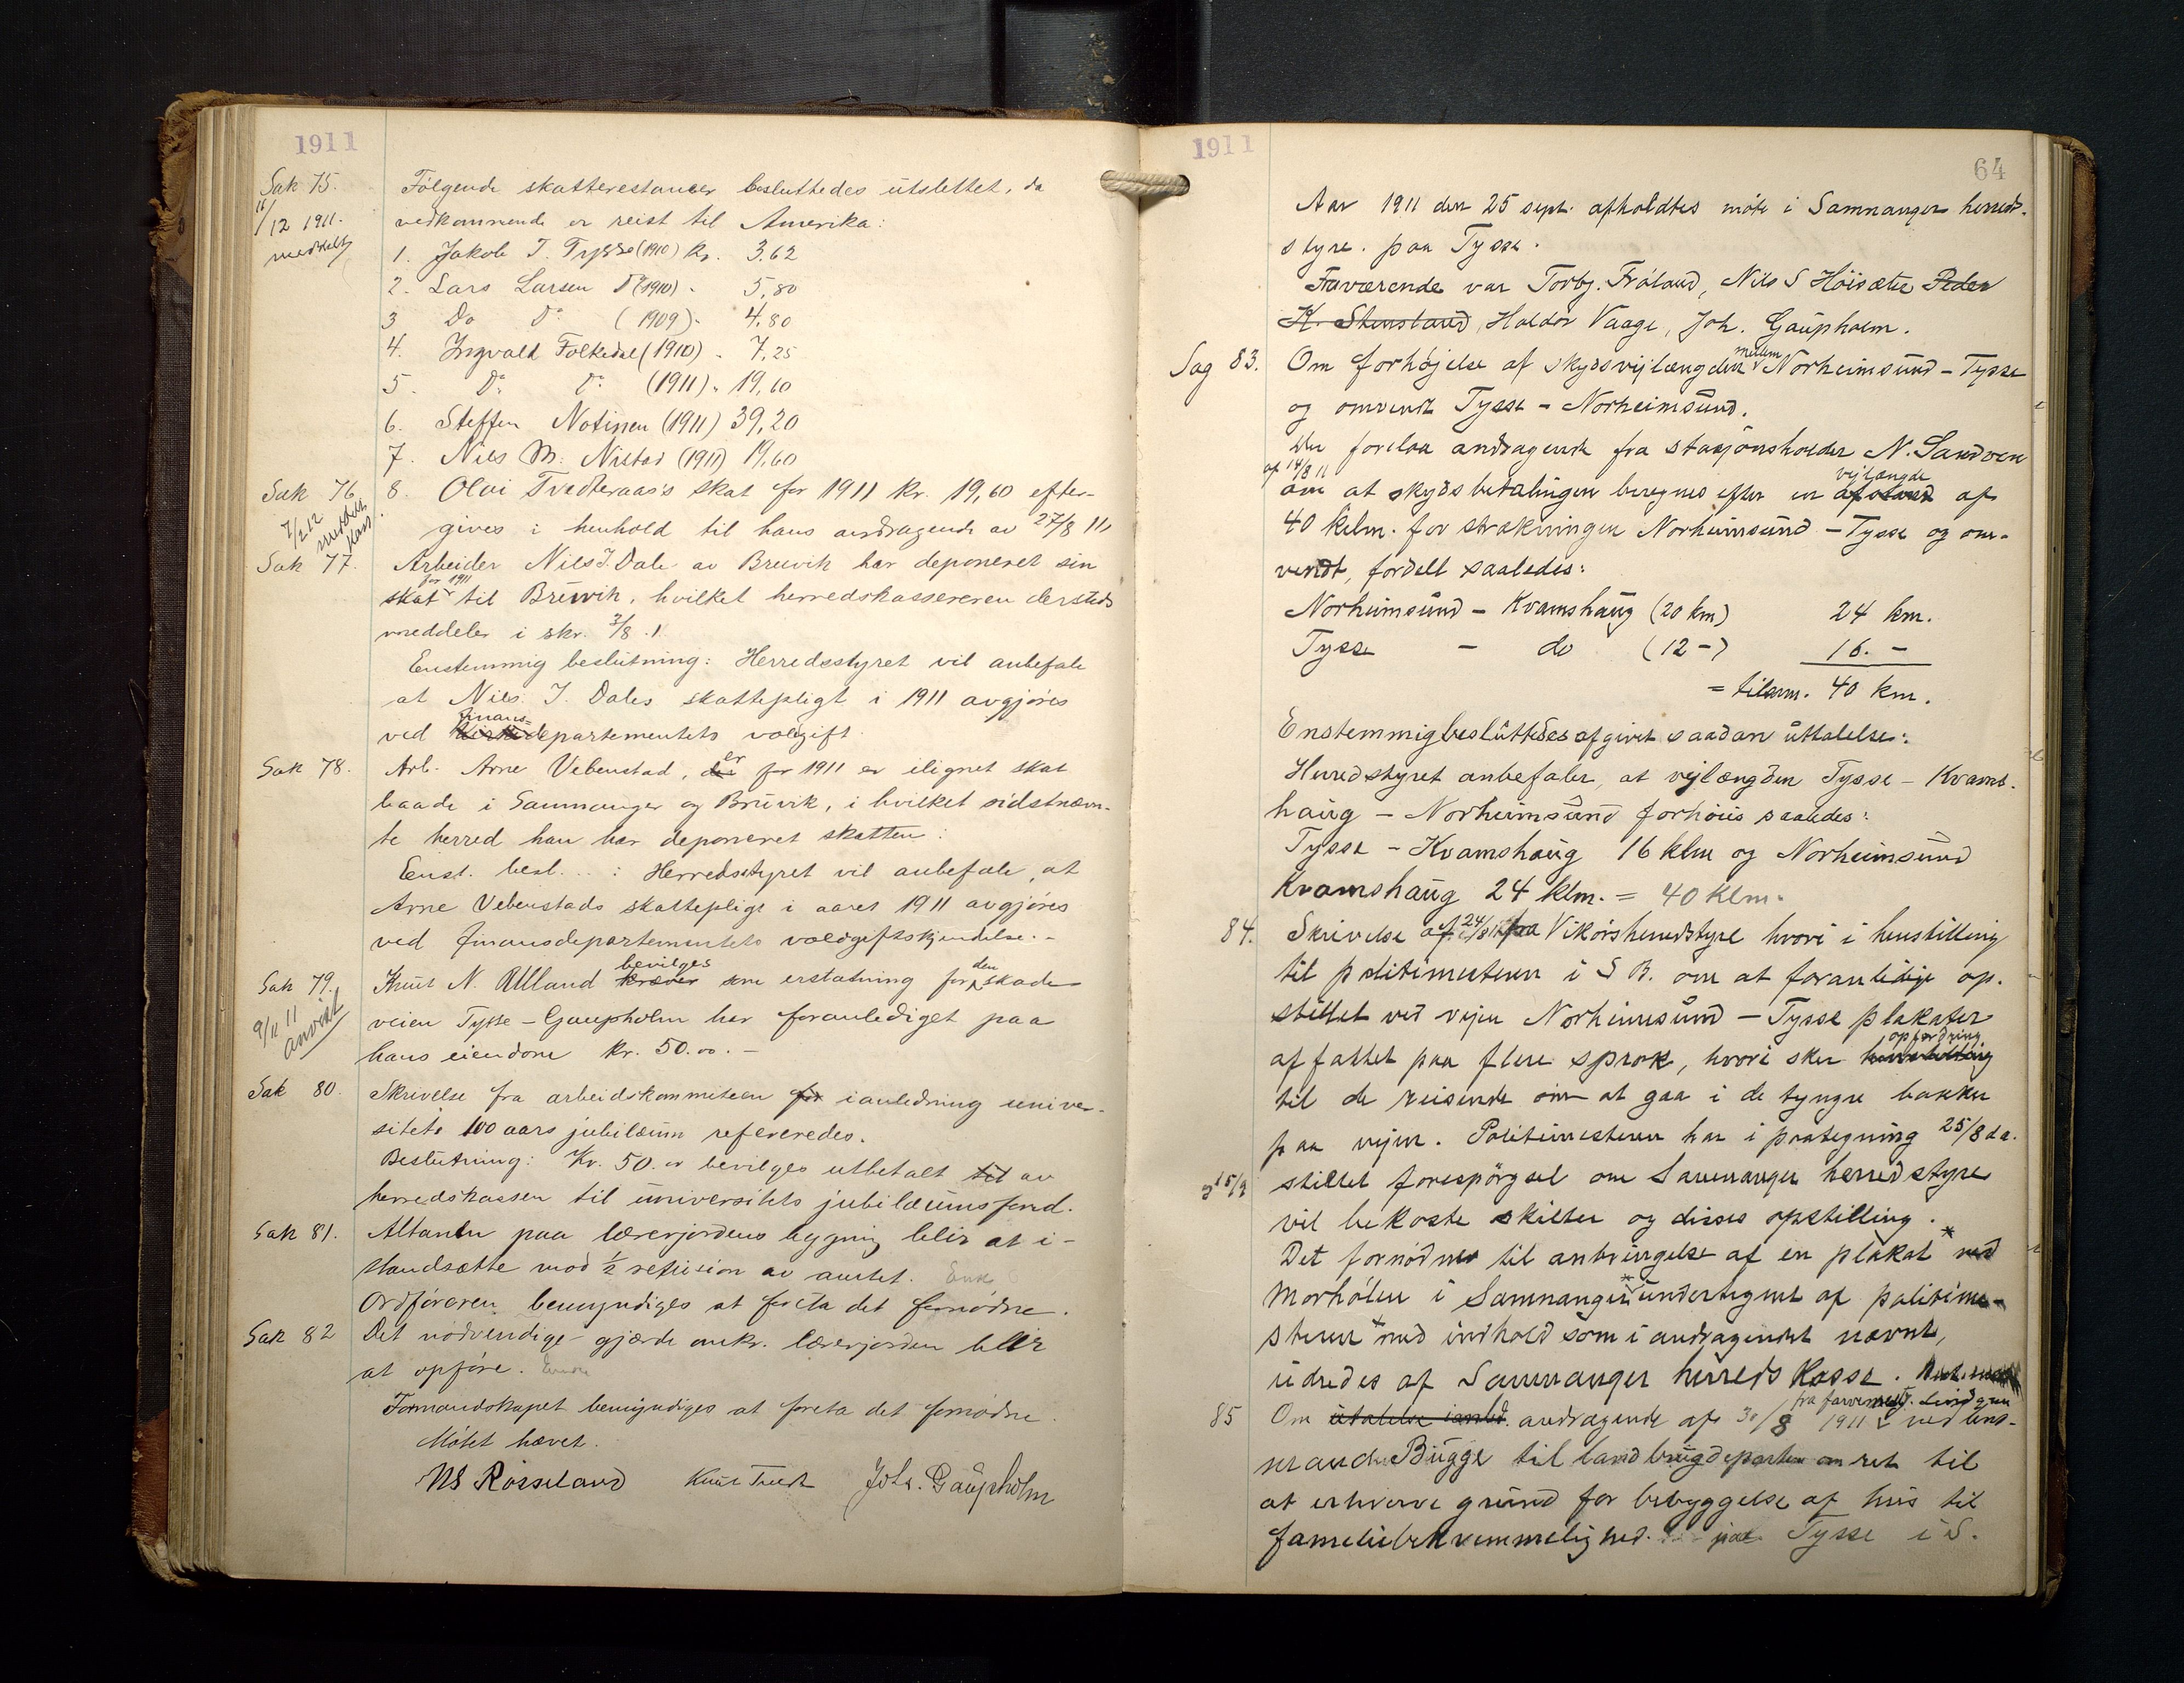 1911
Sak 75. Følgende skatterestancer besluttedes utslettet, da
11/12 1911. vedkommende er reist til Amerika:
meddelt
1. Jakob J. Tysse (1910) kr. 3.62
2. Lars Larsen do (1910) - 5,80
3 Do do (1909) - 4,80
4. Ingvald Folkedal (1910) - 7,25
5. do do (1911) - 19,60
6. Steffen Notinen (1911) 39,20
7. Nils M. Nilstad (1911) 19,60
Sak 76. 8. Olai Tvedteraas's skat for 1911 kr. 19,60 efter-
gives i henhold til hans andragende av 27/8 11,
Sak 77. Arbeider Nils J. Dale av Bruvik har deponeret sin
skat for 1911 til Bruvik, hvilket herredskassereren dersteds
meddeler i skr. 3/8. 1.
Enstemmig beslutning: Herredsstyret vil anbefale
at Nils J. Dales skattepligt i 1911 avgjøres
ved finans-departementets voldgift.
Sak 78. Arb. Arne Vebenstad, er for 1911 er ilignet skat
baade i Samnanger og Bruvik, i hvilket sidstnævn-
te herred han har deponeret skatten:
Enst. besl. ..: Herredsstyret vil anbefale, at
Arne Vebenstads skattepligt i aaret 1911 avgjøres
ved finansdepartementets voldgiftskjendelse. -
Sak 79. Knut N. Aalland kræver bevilges som erstatning for den skade
9/12 11 anvist veien Tysse - Gaupholm har foranlediget paa
hans eiendom kr. 50.00. -
Sak 80. Skrivelse fra arbeidskommiteen for i anledning univer-
sitets 100 aars jubilæum refereredes.
Beslutning: Kr. 50.00 bevilges utbetalt til av
herredskassen til universitets jubilæumsfond.
Sak 81. Altanen paa lærerjordens bygning blir at i-
standsætte mod 1/2 refusion av amtet.
Ordføreren bemyndiges at foreta det fornødne.
Sak 82 Det nødvendige gjærde omkr. lærerjorden blir
at opføre.
Formandskapet bemyndiges at foreta det fornødne.
Møtet hævet.
NS Røsseland Knut Tvedt Johs. Gaupholm
1911
64
Aar 1911 den 25 sept. afholdtes møte i Samnanger herreds-
styre. paa Tysse.
Fraværende var Torbj. Frøland, Nils S Höisæter Peder
K. Stensland, Haldor Vaage, Joh. Gaupholm.
Sag 83. Om forhøjelse af skydsvejlængden mellem Norheimsund - Tysse
og omvendt Tysse - Norheimsund.
Der forelaa andragende fra stasjonsholder N. Sandven
af 14/8 11 om at skydsbetalingen beregnes efter en afstand vejlængde af
40 kilm. for strækningen Norheimsund - Tysse og om-
vendt, fordelt saaledes:
Norheimsund - Kvamshaug (20 km) 24 km.
Tysse - do (12 -) 16. -
= tilsam. 40 km.
Enstemmig besluttedes afgivet saadan uttalelse:
Herredstyret anbefaler, at vejlængden Tysse - Kvams-
haug - Norheimsund forhøies saaledes:
Tysse - Kvamshaug 16 klm og Norheimsund
Kvamshaug 24 klm. = 40 klm.
84. Skrivelse af 24/8 11 fra Vikørsherredstyre hvori i henstilling
til politimesteren i S B. om at foranledige op-
stillet ved vejen Norheimsund - Tysse plakater
affattet paa flere sprok, hvori sker henstilling opfordring
til de reisende om at gaa i de tyngre bakker
paa vejen. Politimesteren har i paategning 25/8 d.a.
og 15/9 stillet forespørgsel om Samnanger herredstyre
vil bekoste skilter og disses opstilling.
Det fornødne til anbringelse af en plakat * ved
Mørhølen i Samnanger * undertegnet af politime-
steren * med indhold som i andragendet nævnt,
udredes af Samnanger herreds kasse.
85 Om utalelse i anled. andragende af 30/8 1911 fra farvermestr. Lindgren ved lens-
mand Bugge til landbrugdepartementet om ret til
at erhverve grund for bebyggelse af hus til
familiebekvemmelighed. paa Tysse i S.